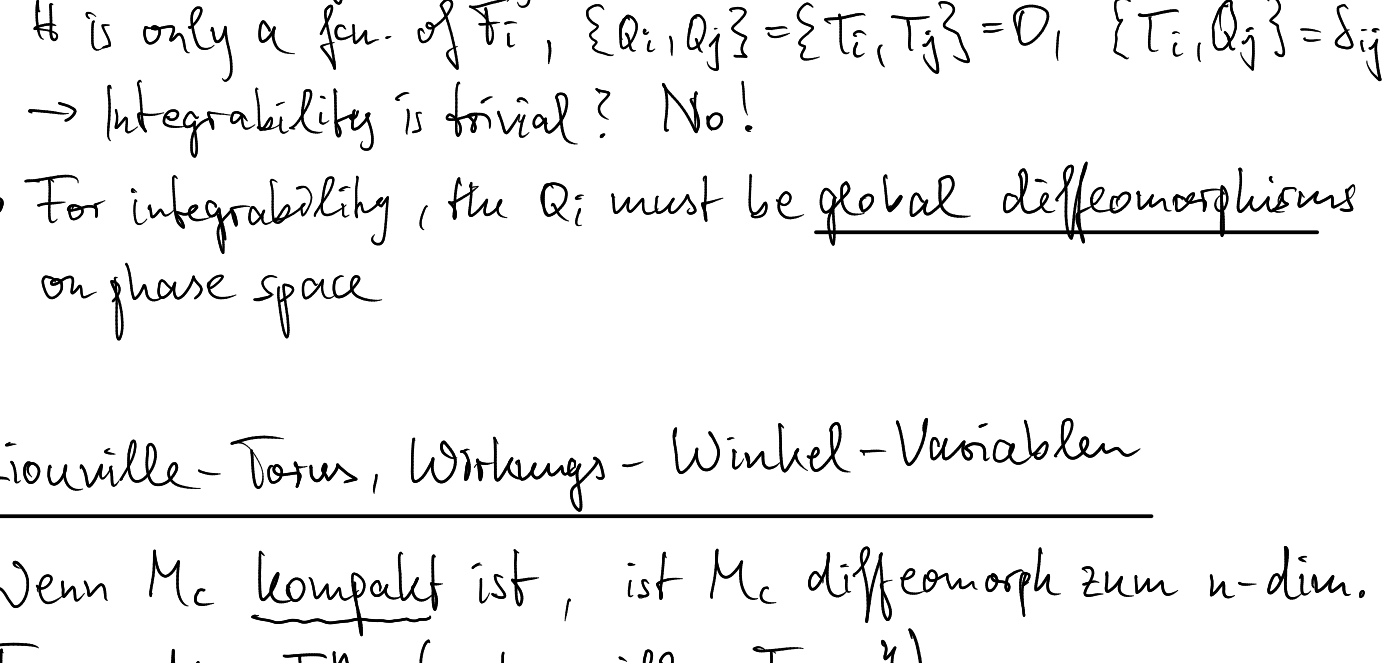 H is only a fcn. of Fi, {Qi, Qj} = {Ti, Tj} = 0, {Ti, Qj} = δij
→ Integrability is trivial? No!
• For integrability, the Qi must be global diffeomorphisms
on phase space
Liouville-Torus, Wirkungs-Winkel-Variablen
Wenn Mc kompakt ist, ist Mc diffeomorph zum n-dim.